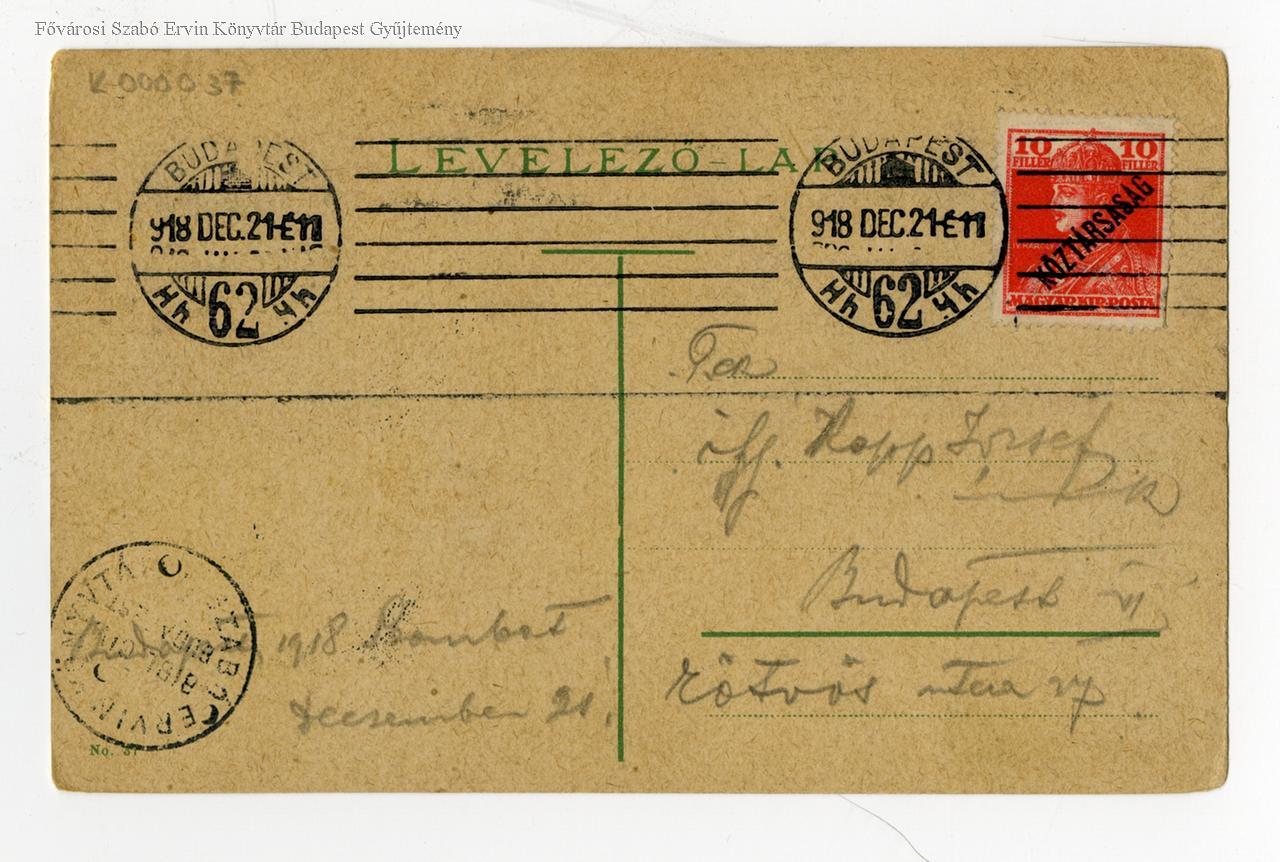 Fővárosi Szabó Ervin Könyvtár Budapest Gyűjtemény
K-000037
LEVELEZŐ-LAP
BUDAPEST
918 DEC.21-E11
62
BUDAPEST
918 DEC.21-E11
62
10 10
FILLÉR FILLÉR
KÖZTÁRSASÁG
MAGYAR KIR. POSTA
ifj. Kopp József
Budapest VI
Eötvös utca
Budapest, 1918 Szombat
deczember 21.
SZABÓ ERVIN KÖNYVTÁR
No. 37